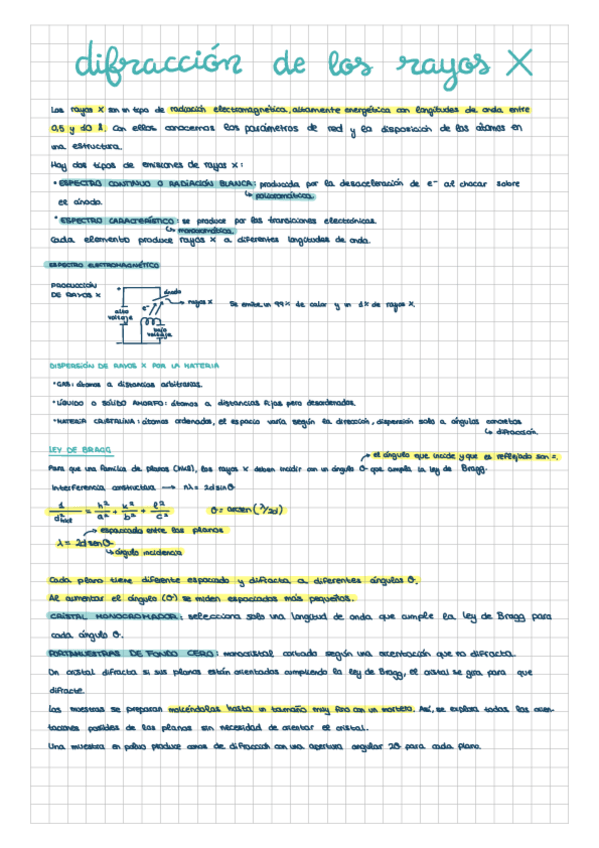 difracción de los rayos X
Los rayos X son un tipo de radiación electromagnética, altamente energética con longitudes de onda entre
0,5 y 10 Å. Con ellos conocemos los parámetros de red y la disposición de los átomos en
una estructura.
Hay dos tipos de emisiones de rayos X:
• ESPECTRO CONTINUO O RADIACIÓN BLANCA: producida por la desaceleración de e⁻ al chocar sobre
↳ policromática.
el ánodo.
• ESPECTRO CARACTERÍSTICO: se produce por las transiciones electrónicas.
↳ monocromática.
Cada elemento produce rayos X a diferentes longitudes de onda.
ESPECTRO ELECTROMAGNÉTICO
PRODUCCIÓN
DE RAYOS X
+
ánodo
e⁻
→ rayos X
alto
voltaje
bajo
voltaje
Se emite un 99% de calor y un 1% de rayos X.
DISPERSIÓN DE RAYOS X POR LA MATERIA
• GAS: átomos a distancias arbitrarias.
• LÍQUIDO O SÓLIDO AMORFO: átomos a distancias fijas pero desordenados.
• MATERIA CRISTALINA: átomos ordenados, el espacio varía según la dirección, dispersión solo a ángulos concretos
↳ difracción.
LEY DE BRAGG
→ el ángulo que incide y que es reflejado son =.
Para que una familia de planos (hkl), los rayos X deben incidir con un ángulo θ que cumpla la ley de Bragg.
Interferencia constructiva → nλ = 2d sin θ
1/d²hkl = h²/a² + k²/b² + l²/c²
θ = arcsen (λ/2d)
→ espaciado entre los planos
λ = 2d sen θ
↳ ángulo incidencia
Cada plano tiene diferente espaciado y difracta a diferentes ángulos θ.
Al aumentar el ángulo (θ) se miden espaciados más pequeños.
CRISTAL MONOCROMADOR: selecciona solo una longitud de onda que cumple la ley de Bragg para
cada ángulo θ.
PORTAMUESTRAS DE FONDO CERO: monocristal cortado según una orientación que no difracta.
Un cristal difracta si sus planos están orientados cumpliendo la ley de Bragg, el cristal se gira para que
difracte.
Las muestras se preparan moliéndolas hasta un tamaño muy fino con un mortero. Así, se explora todas las orien-
taciones posibles de los planos sin necesidad de orientar el cristal.
Una muestra en polvo produce conos de difracción con una apertura angular 2θ para cada plano.